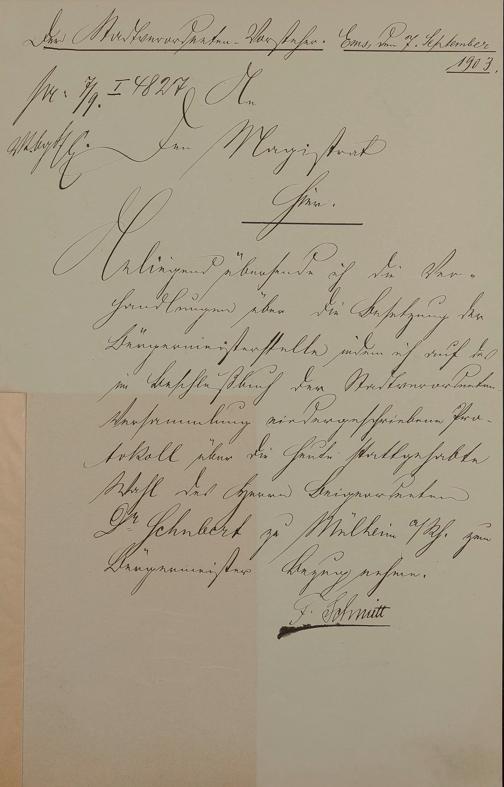 Der Stadtverordneten-Vorsteher. Ems, den 7. September
1903.
pr. 7/9. I 4827 An
Den Magistrat
Hier.
Anliegend übersende ich die Ver-
handlungen über die Besetzung der
Bürgermeisterstelle indem ich auf das
im Beschlußbuch der Stadtverordneten
Versammlung niedergeschriebene Pro-
tokoll über die heute stattgehabte
Wahl des Herrn Beigeordneten
Dr Schubert zu Mülheim a/Rh. zum
Bürgermeister Bezug nehme.
F. Schmitt